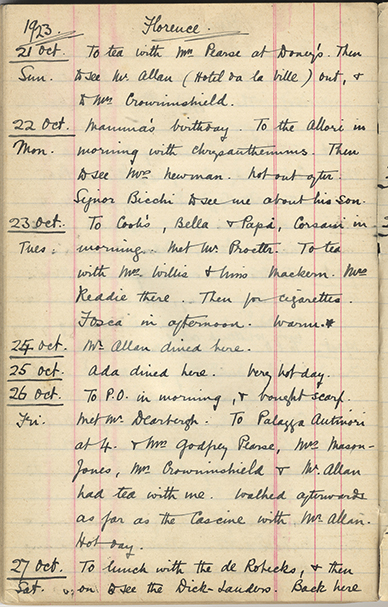 1923. Florence.
21 Oct. To tea with Mrs Pearse at Doney's. Then
Sun. to see Mr. Allan (Hotel de la Ville) out, &
to Mrs Crowninshield.
22 Oct. Mamma's birthday. To the Allori in
Mon. morning with chrysanthemums. Then
to see Mrs Newman. Not out after.
Signor Bicchi to see me about his son.
23 Oct. To Cook's, Bella & Papà, Corsani in
Tues. morning. Met Mr. Procter. To tea
with Mrs Willis & Miss Mackern. Mrs
Readie there. Then for cigarettes.
Tosca in afternoon. Warm.*
24 Oct. Mr. Allan dined here.
25 Oct. Ada dined here. Very hot day.
26 Oct. To P.O. in morning, & bought scarf.
Fri. Met Mr. Dearbergh. To Palazzo Antinori
at 4. & Mrs Godfrey Pearse, Mrs Mason-
Jones, Mrs Crowninshield & Mr. Allan
had tea with me. Walked afterwards
as far as the Cascine with Mr. Allan.
Hot day.
27 Oct. To lunch with the de Robecks, & then
Sat. on to see the Dick-Lauders. Back here